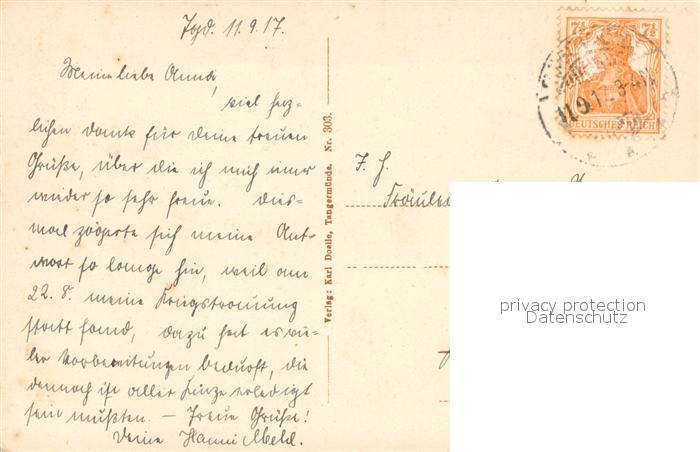 Tgd. 11.9.17.
Meine liebe Anna,
viel herz-
lichen Dank für Deine treuen
Grüße, über die ich mich immer
wieder so sehr freue. Dies-
mal zögerte sich meine Ant-
wort so lange hin, weil am
22.8. meine Kriegstrauung
statt fand, dazu hat es vie-
ler Vorbereitungen bedurft, die
dennoch in aller Kürze erledigt
sein mußten. — Treue Grüße!
Deine Hanni
Verlag: Karl Doelle, Tangermünde. Nr. 303.
7½ 7½
DEUTSCHES REICH
11.9.17. 8-9V
F. H.
Fräulein
privacy protection
Datenschutz